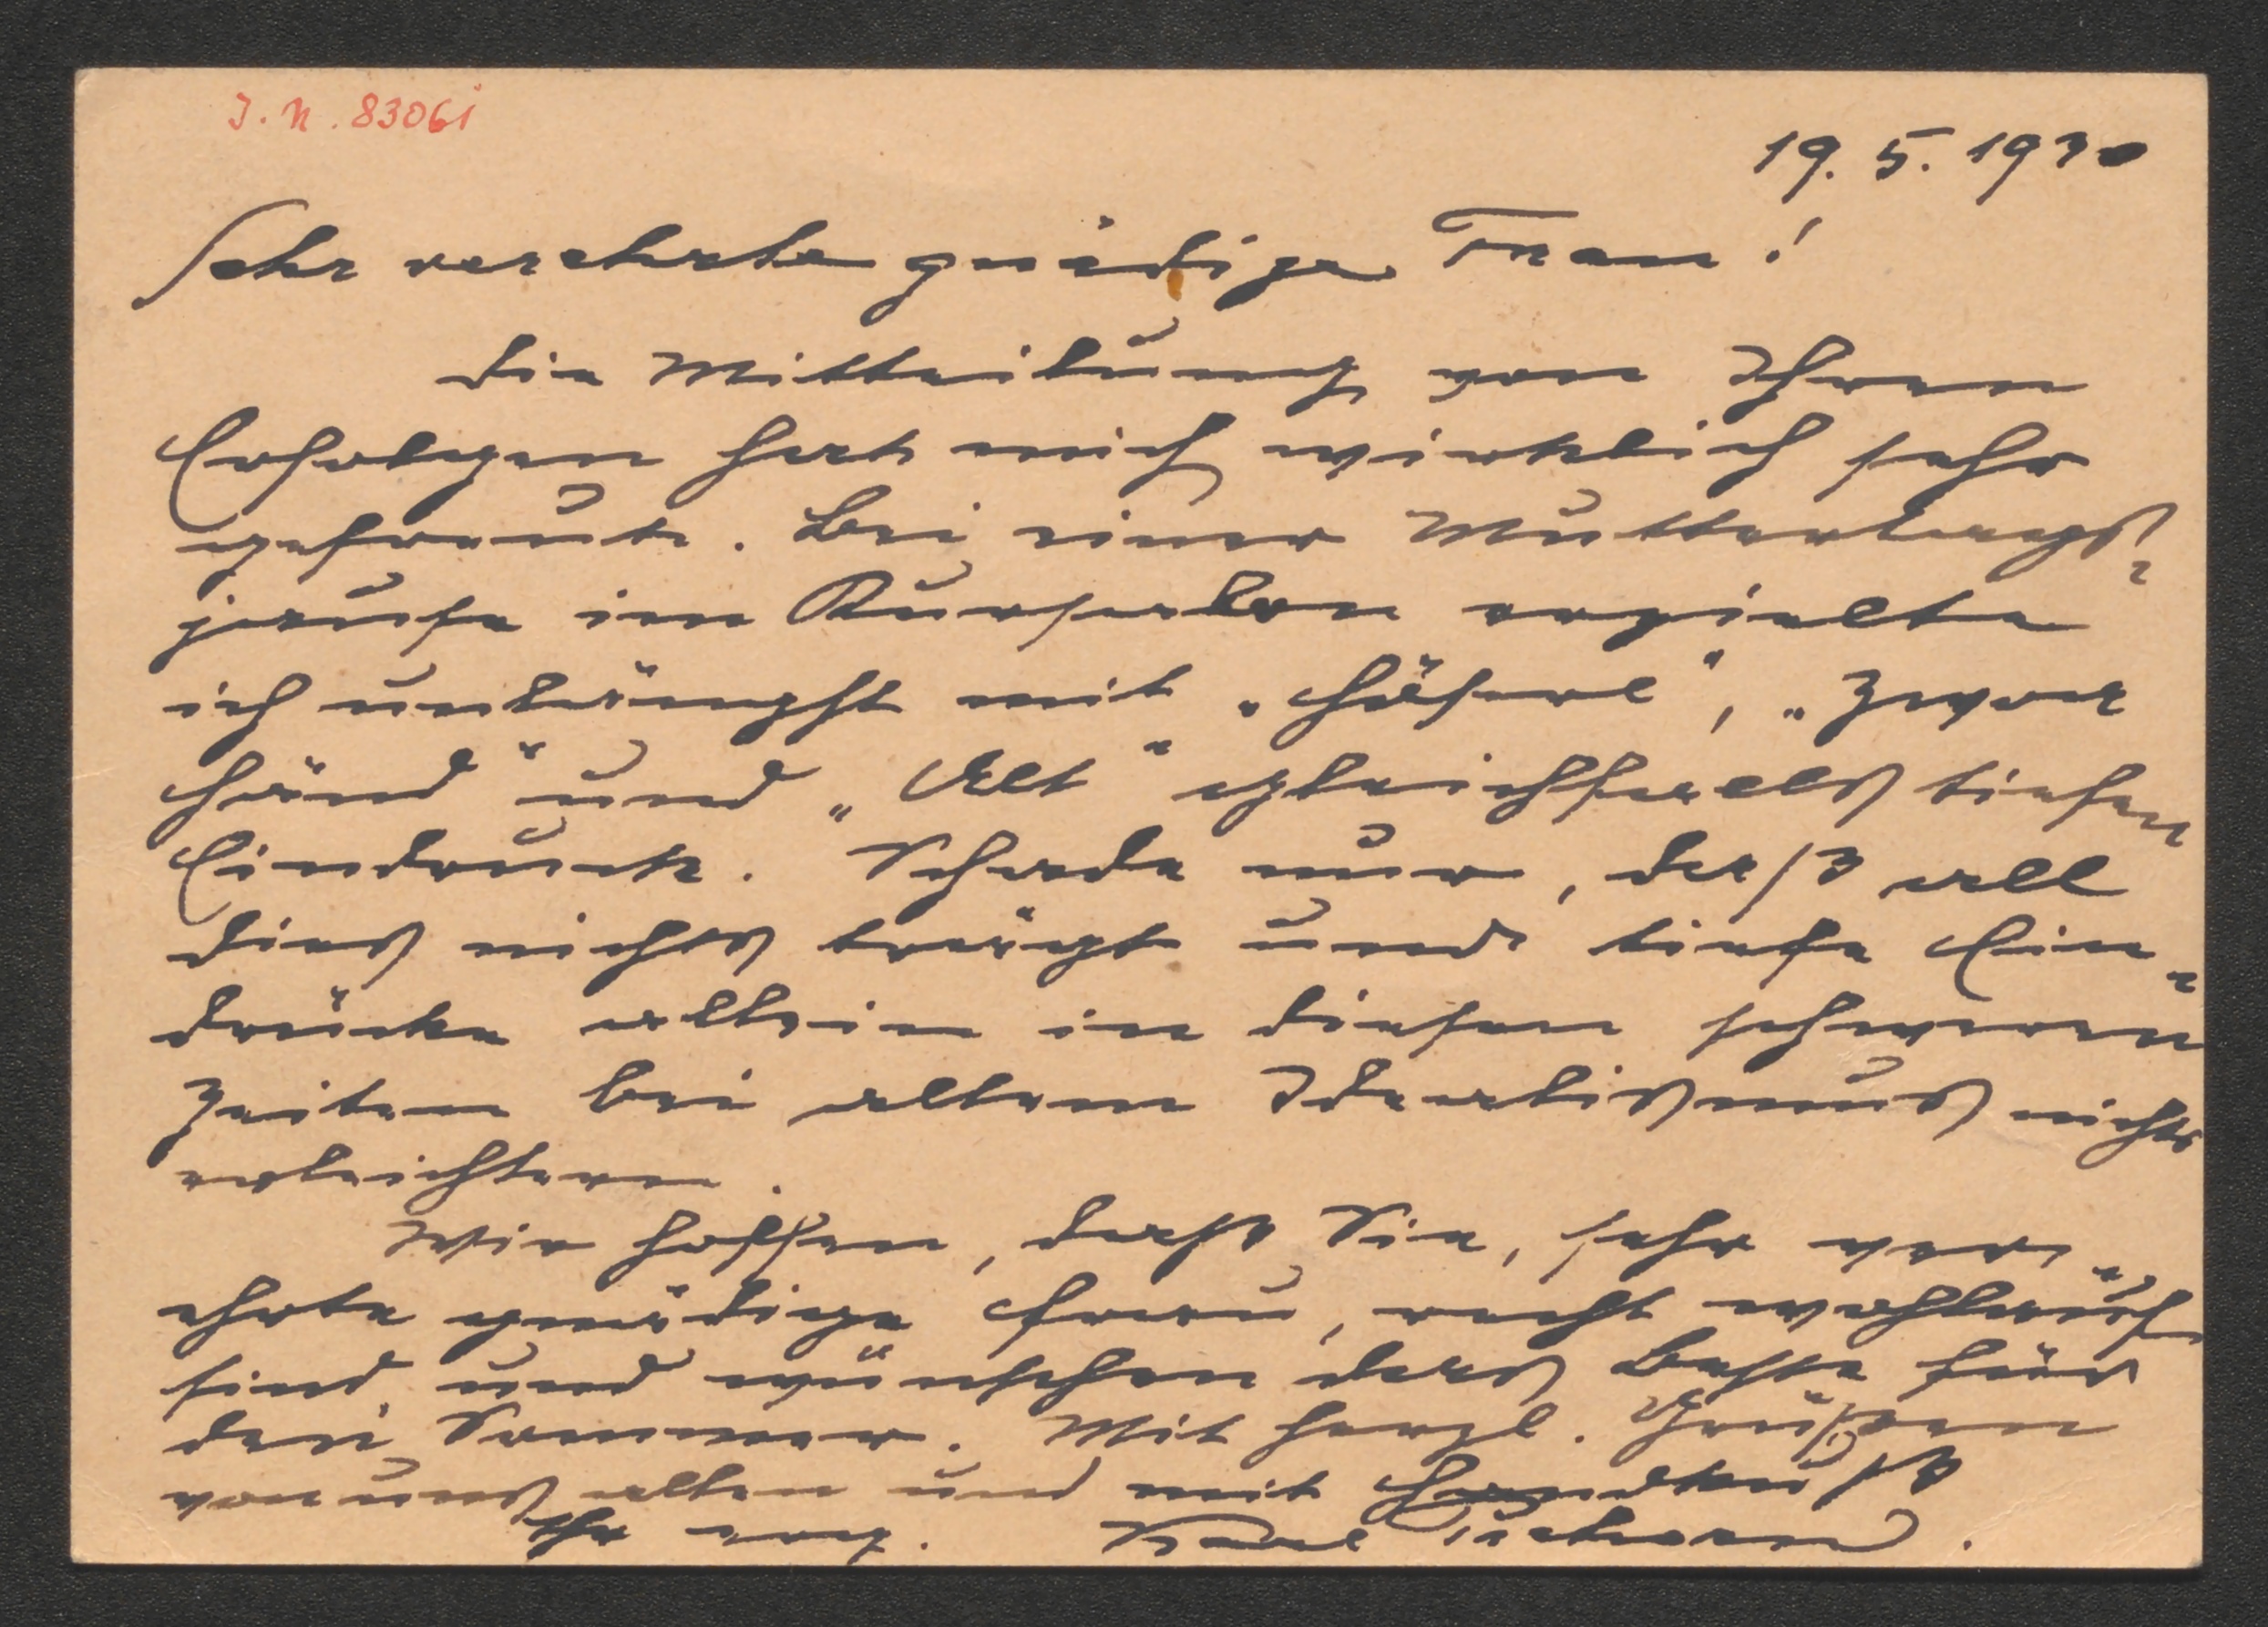 J. N. 83061
19. 5. 1930
Sehr verehrte gnädige Frau!
Die Mitteilung von Ihren
Erfolgen hat mich wirklich sehr
gefreut. Bei einer Muttertags-
jause im Kursalon erzielte
ich unlängst mit „Häferl", „Zwoa
Händ" und „Alt" gleichfalls tiefen
Eindruck. Schade nur, daß all
dies nichts trägt und tiefe Ein-
drücke allein in diesen schweren
Zeiten bei allem Idealismus nichts
erleichtern.
Wir hoffen, daß Sie, sehr ver-
ehrte gnädige Frau, recht wohlauf
sind und wünschen das Beste für
den Sommer. Mit herzl. Grüßen
von uns allen und mit Handkuß
Ihr erg. Karl